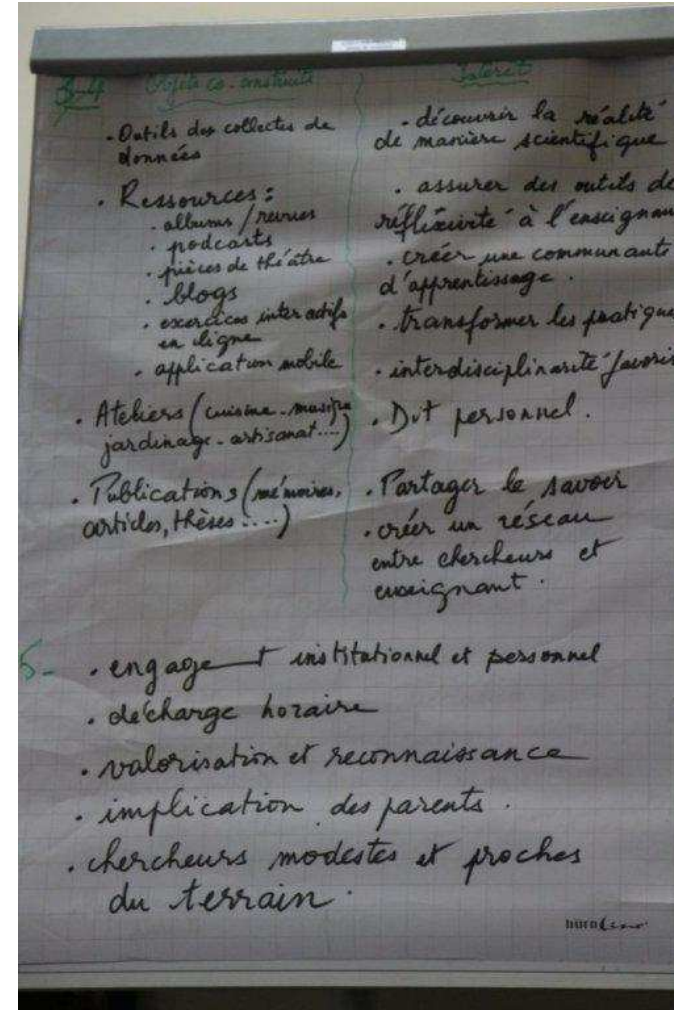 3-4 Objets co-construits
. Outils des collectes de
données
. Ressources :
. albums / revues
. podcasts
. pièces de théâtre
. blogs
. exercices interactifs
en ligne
. application mobile
. Ateliers (cuisine - musique
jardinage - artisanat....)
. Publications (mémoires,
articles, thèses ....)
Intérêt
. découvrir la réalité
de manière scientifique
. assurer des outils de
réfléxivité à l'enseignan
. créer une communauté
d'apprentissage .
. transformer les pratique
. interdisciplinarité favoris
. personnel .
. Partager le savoir
. créer un réseau
entre chercheurs et
enseignant .
5- . engage__t institutionnel et personnel
. décharge horaire
. valorisation et reconnaissance
. implication des parents .
. chercheurs modestes et proches
du terrain .